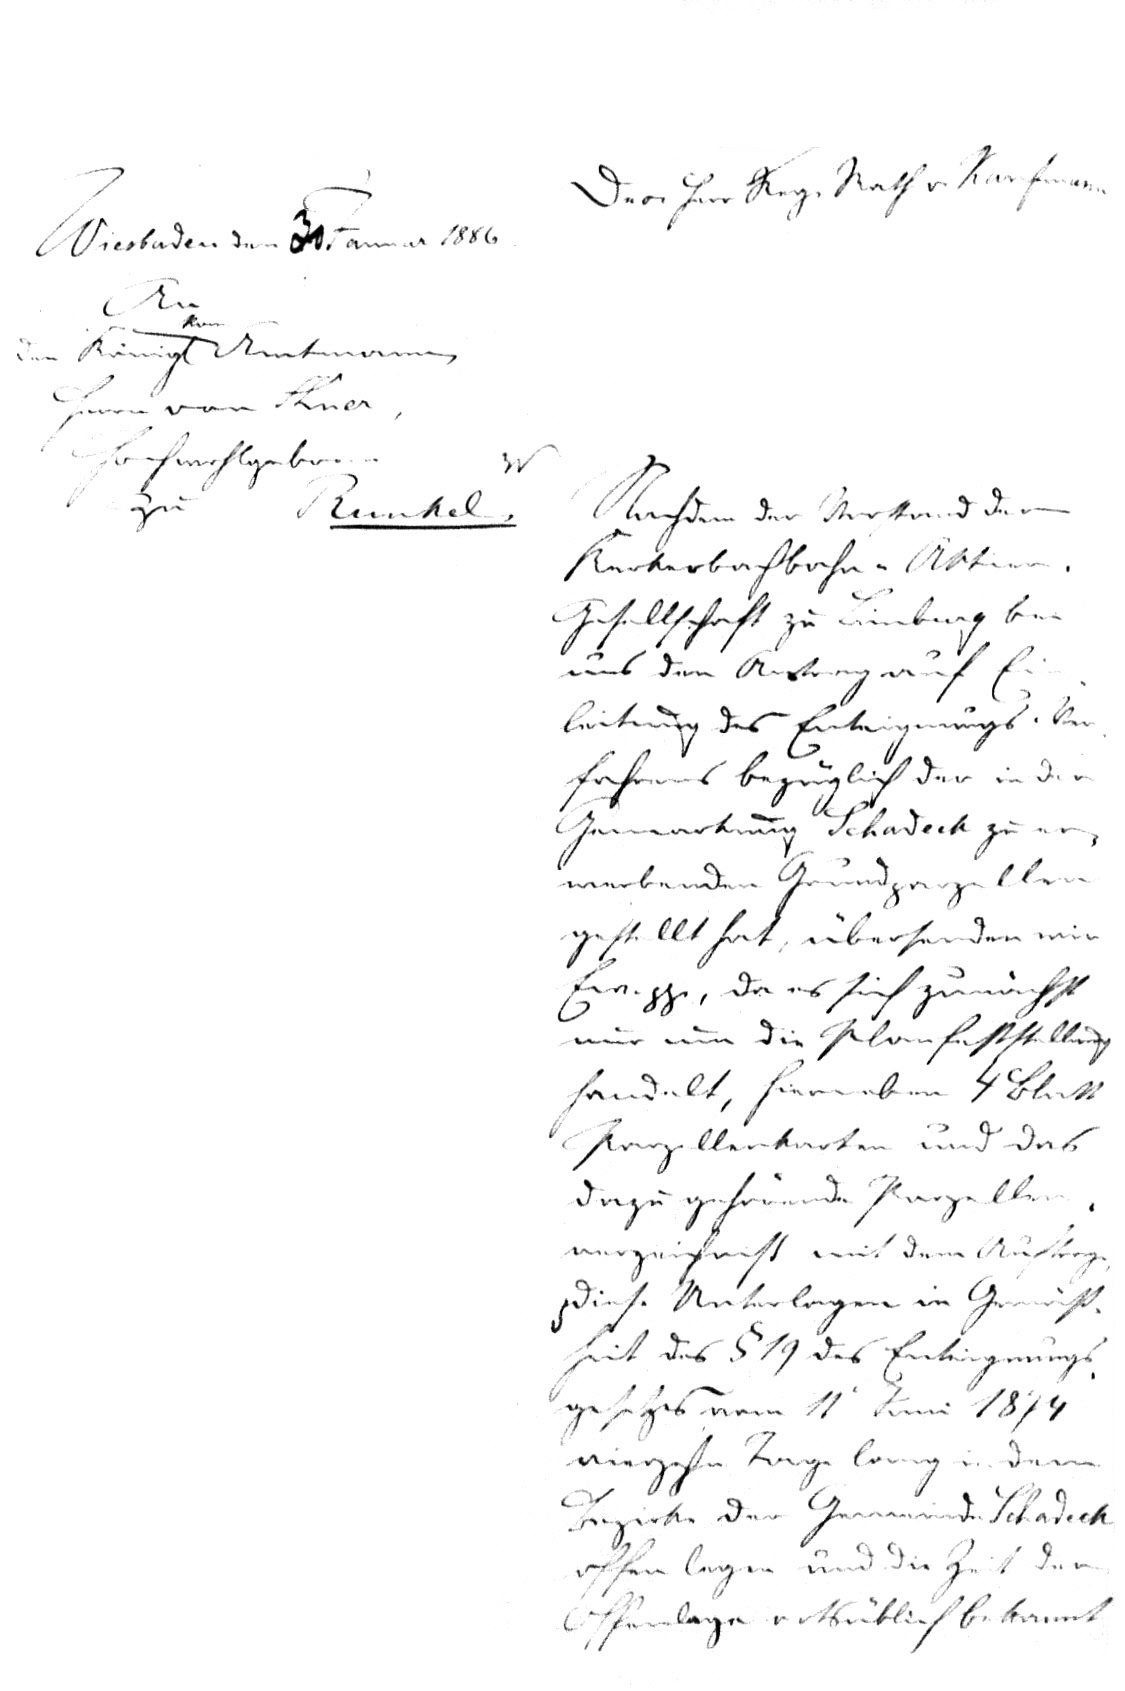 Der Herr Reg. Rath v. Kaufmann
Wiesbaden den 30 Januar 1886
An
den Königl Amtmann,
Herrn von
Hochwohlgeboren
zu Runkel.
Nachdem der Vorstand der
Kerkerbachbahn-Aktien-
Gesellschaft zu Limburg bei
uns den Antrag auf Ein-
leitung des Enteignungs-Ver-
fahrens bezüglich der in der
Gemarkung Schadeck zu er-
werbenden Grundparzellen
gestellt hat, übersenden wir
Ew. pp., da es sich zunächst
nur um die Planfeststellung
handelt, hierneben 4 Blatt
Parzellenkarten und das
dazu gehörende Parzellen-
verzeichniß mit dem Auftrage,
diese Unterlagen in Gemäß-
heit des § 19 des Enteignungs-
gesetzes vom 11 Juni 1874
vierzehn Tage lang in dem
Bezirke der Gemeinde Schadeck
offen legen und die Zeit der
Offenlage ortsüblich bekannt